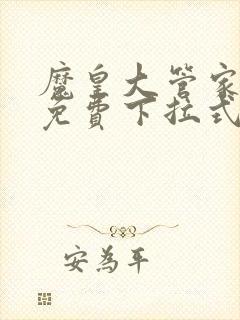 魔皇大管家
免費下拉式
安為平